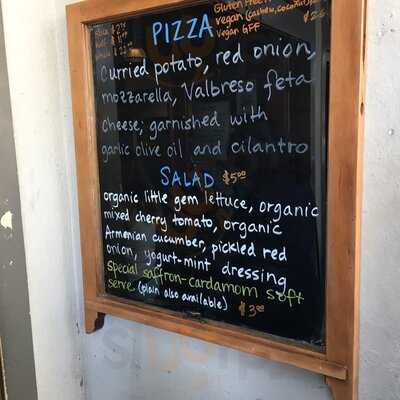 PIZZA
Gluten Free
vegan (cashew, coconut)
Vegan GFF
Curried potato, red onion,
mozzarella, Valbreso feta
cheese, garnished with
garlic olive oil and cilantro
SALAD $5.00
organic little gem lettuce, organic
mixed cherry tomato, organic
Armenian cucumber, pickled red
onion, yogurt-mint dressing
Special saffron-cardamom soft
serve. (plain also available) $3.00